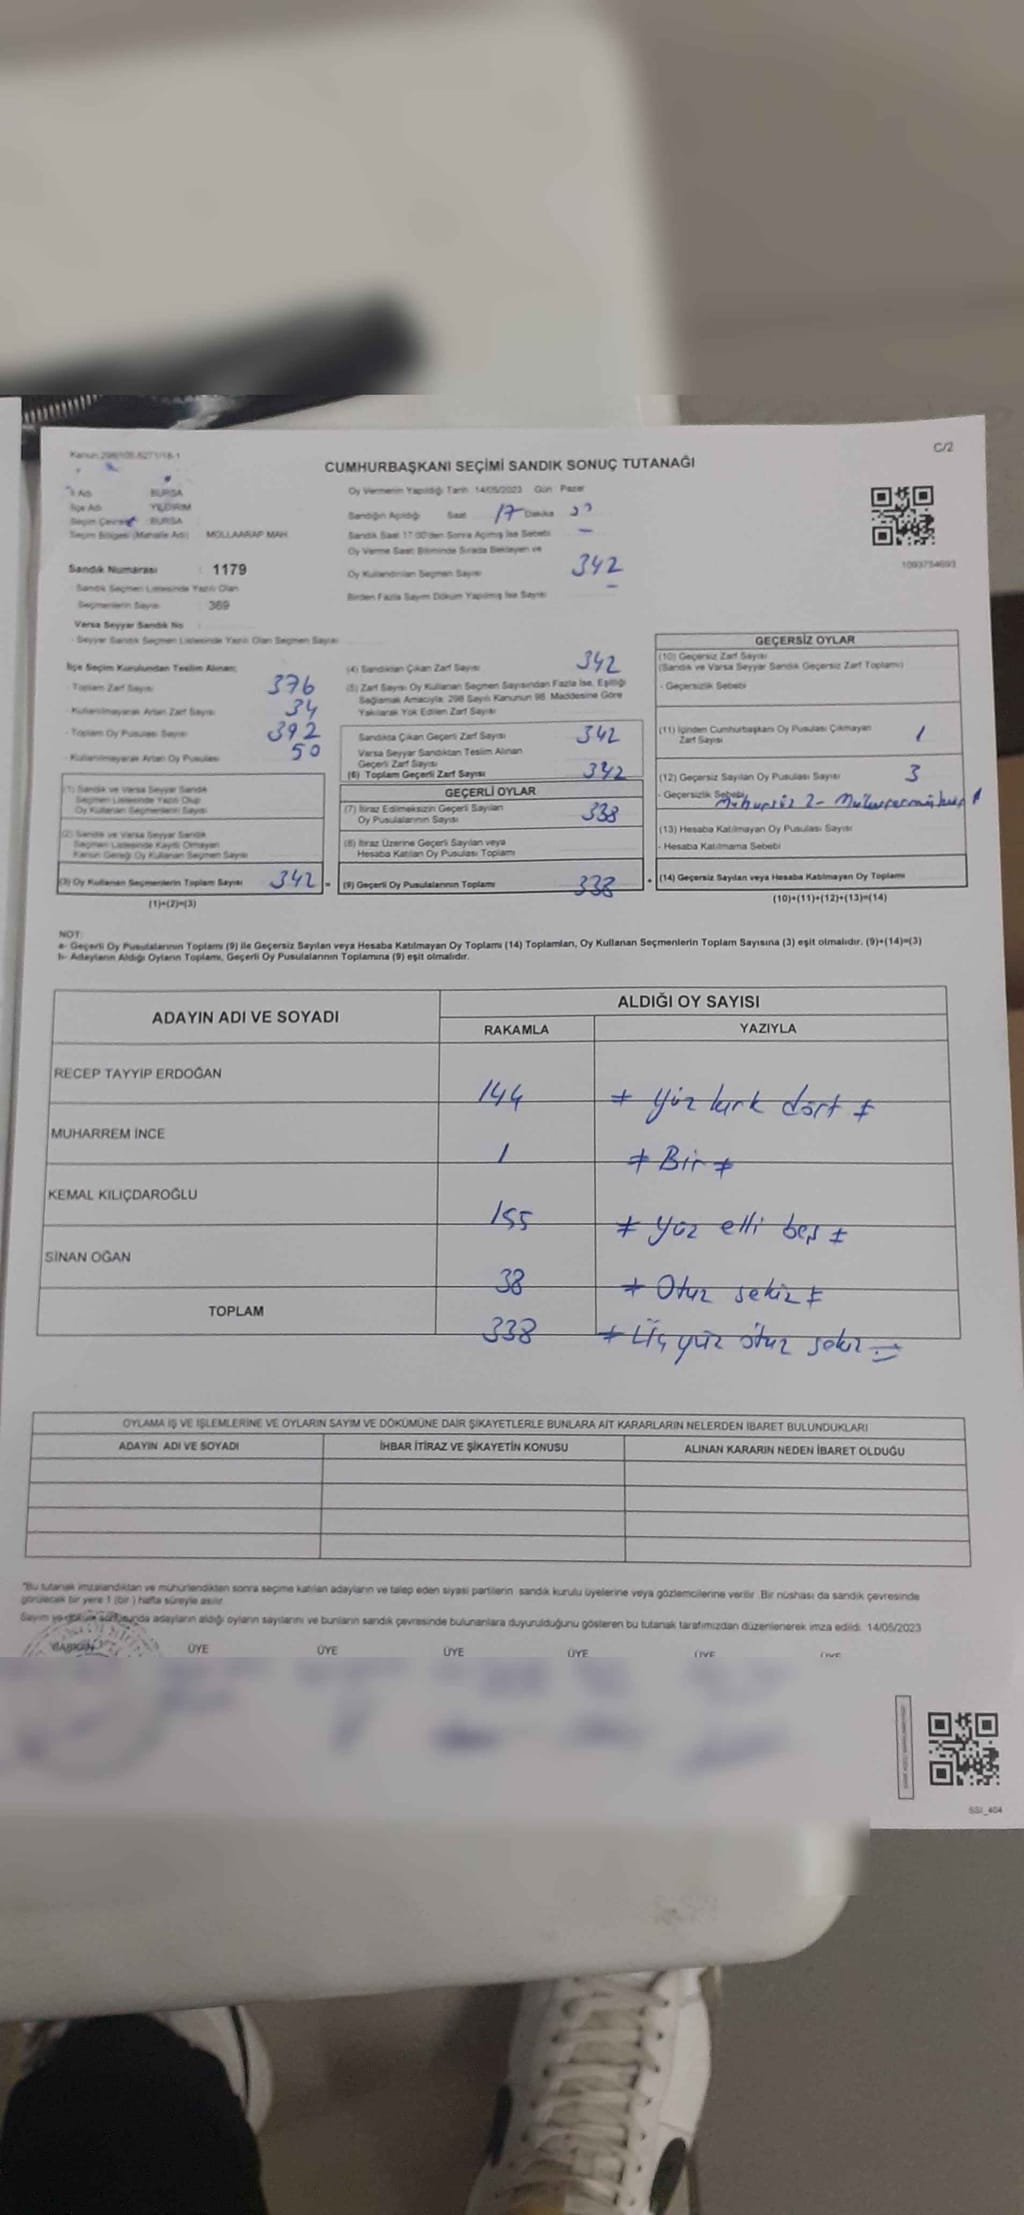 C/2
CUMHURBAŞKANI SEÇİMİ SANDIK SONUÇ TUTANAĞI
İl Adı BURSA
İlçe Adı YILDIRIM
Seçim Çevresi BURSA
Seçim Bölgesi (Mahalle Adı) MOLLAARAP MAH.
Sandık Numarası : 1179
Sandık Seçmen Listesinde Yazılı Olan
Seçmenlerin Sayısı : 369
Versa Seyyar Sandık No
- Seyyar Sandık Seçmen Listesinde Yazılı Olan Seçmen Sayısı
Oy Vermenin Yapıldığı Tarih : 14/05/2023 Gün : Pazar
Sandığın Açıldığı Saat 17 Dakika
Sandık Saat 17:00'den Sonra Açılmış İse Sebebi –
Oy Verme Saati Bitiminde Sırada Bekleyen ve
Oy Kullandırılan Seçmen Sayısı 342
Birden Fazla Sayım Döküm Yapılmış İse Sayısı –
1093754693
İlçe Seçim Kurulundan Teslim Alınan;
- Toplam Zarf Sayısı 376
- Kullanılmayarak Artan Zarf Sayısı 34
- Toplam Oy Pusulası Sayısı 392
- Kullanılmayarak Artan Oy Pusulası 50
(1) Sandık ve Varsa Seyyar Sandık
Seçmen Listesinde Yazılı Olup
Oy Kullanan Seçmenlerin Sayısı
(2) Sandık ve Varsa Seyyar Sandık
Seçmen Listesinde Kayıtlı Olmayan
Kanun Gereği Oy Kullanan Seçmen Sayısı
(3) Oy Kullanan Seçmenlerin Toplam Sayısı 342 =
(1)+(2)=(3)
(4) Sandıktan Çıkan Zarf Sayısı 342
(5) Zarf Sayısı Oy Kullanan Seçmen Sayısından Fazla İse, Eşitliği
Sağlamak Amacıyla, 298 Sayılı Kanunun 98. Maddesine Göre
Yakılarak Yok Edilen Zarf Sayısı
Sandıkta Çıkan Geçerli Zarf Sayısı 342
Varsa Seyyar Sandıktan Teslim Alınan
Geçerli Zarf Sayısı
(6) Toplam Geçerli Zarf Sayısı 342
GEÇERLİ OYLAR
(7) İtiraz Edilmeksizin Geçerli Sayılan
Oy Pusulalarının Sayısı 338
(8) İtiraz Üzerine Geçerli Sayılan veya
Hesaba Katılan Oy Pusulası Toplamı
(9) Geçerli Oy Pusulalarının Toplamı 338 +
GEÇERSİZ OYLAR
(10) Geçersiz Zarf Sayısı
(Sandık ve Varsa Seyyar Sandık Geçersiz Zarf Toplamı)
- Geçersizlik Sebebi
(11) İçinden Cumhurbaşkanı Oy Pusulası Çıkmayan
Zarf Sayısı 1
(12) Geçersiz Sayılan Oy Pusulası Sayısı 3
- Geçersizlik Sebebi
(13) Hesaba Katılmayan Oy Pusulası Sayısı
- Hesaba Katılmama Sebebi
(14) Geçersiz Sayılan veya Hesaba Katılmayan Oy Toplamı
(10)+(11)+(12)+(13)=(14)
NOT:
a- Geçerli Oy Pusulalarının Toplamı (9) ile Geçersiz Sayılan veya Hesaba Katılmayan Oy Toplamı (14) Toplamları, Oy Kullanan Seçmenlerin Toplam Sayısına (3) eşit olmalıdır. (9)+(14)=(3)
b- Adayların Aldığı Oyların Toplamı, Geçerli Oy Pusulalarının Toplamına (9) eşit olmalıdır.
ADAYIN ADI VE SOYADI ALDIĞI OY SAYISI
RAKAMLA YAZIYLA
RECEP TAYYIP ERDOĞAN 144 Yüz kırk dört
MUHARREM İNCE 1 Bir
KEMAL KILIÇDAROĞLU 155 Yüz elli beş
SİNAN OĞAN 38 Otuz sekiz
TOPLAM 338 Üç yüz otuz sekiz
OYLAMA İŞ VE İŞLEMLERİNE VE OYLARIN SAYIM VE DÖKÜMÜNE DAİR ŞİKAYETLERLE BUNLARA AİT KARARLARIN NELERDEN İBARET BULUNDUKLARI
ADAYIN ADI VE SOYADI İHBAR İTİRAZ VE ŞİKAYETİN KONUSU ALINAN KARARIN NEDEN İBARET OLDUĞU
*Bu tutanak imzalandıktan ve mühürlendikten sonra seçime katılan adayların ve talep eden siyasi partilerin sandık kurulu üyelerine veya gözlemcilerine verilir. Bir nüshası da sandık çevresinde
görülecek bir yere 1 (bir) hafta süreyle asılır.
Sayım ve döküm sonucunda adayların aldığı oyların sayılarını ve bunların sandık çevresinde bulunanlara duyurulduğunu gösteren bu tutanak tarafımızdan düzenlenerek imza edildi. 14/05/2023
BAŞKAN ÜYE ÜYE ÜYE ÜYE ÜYE ÜYE
SSI_404